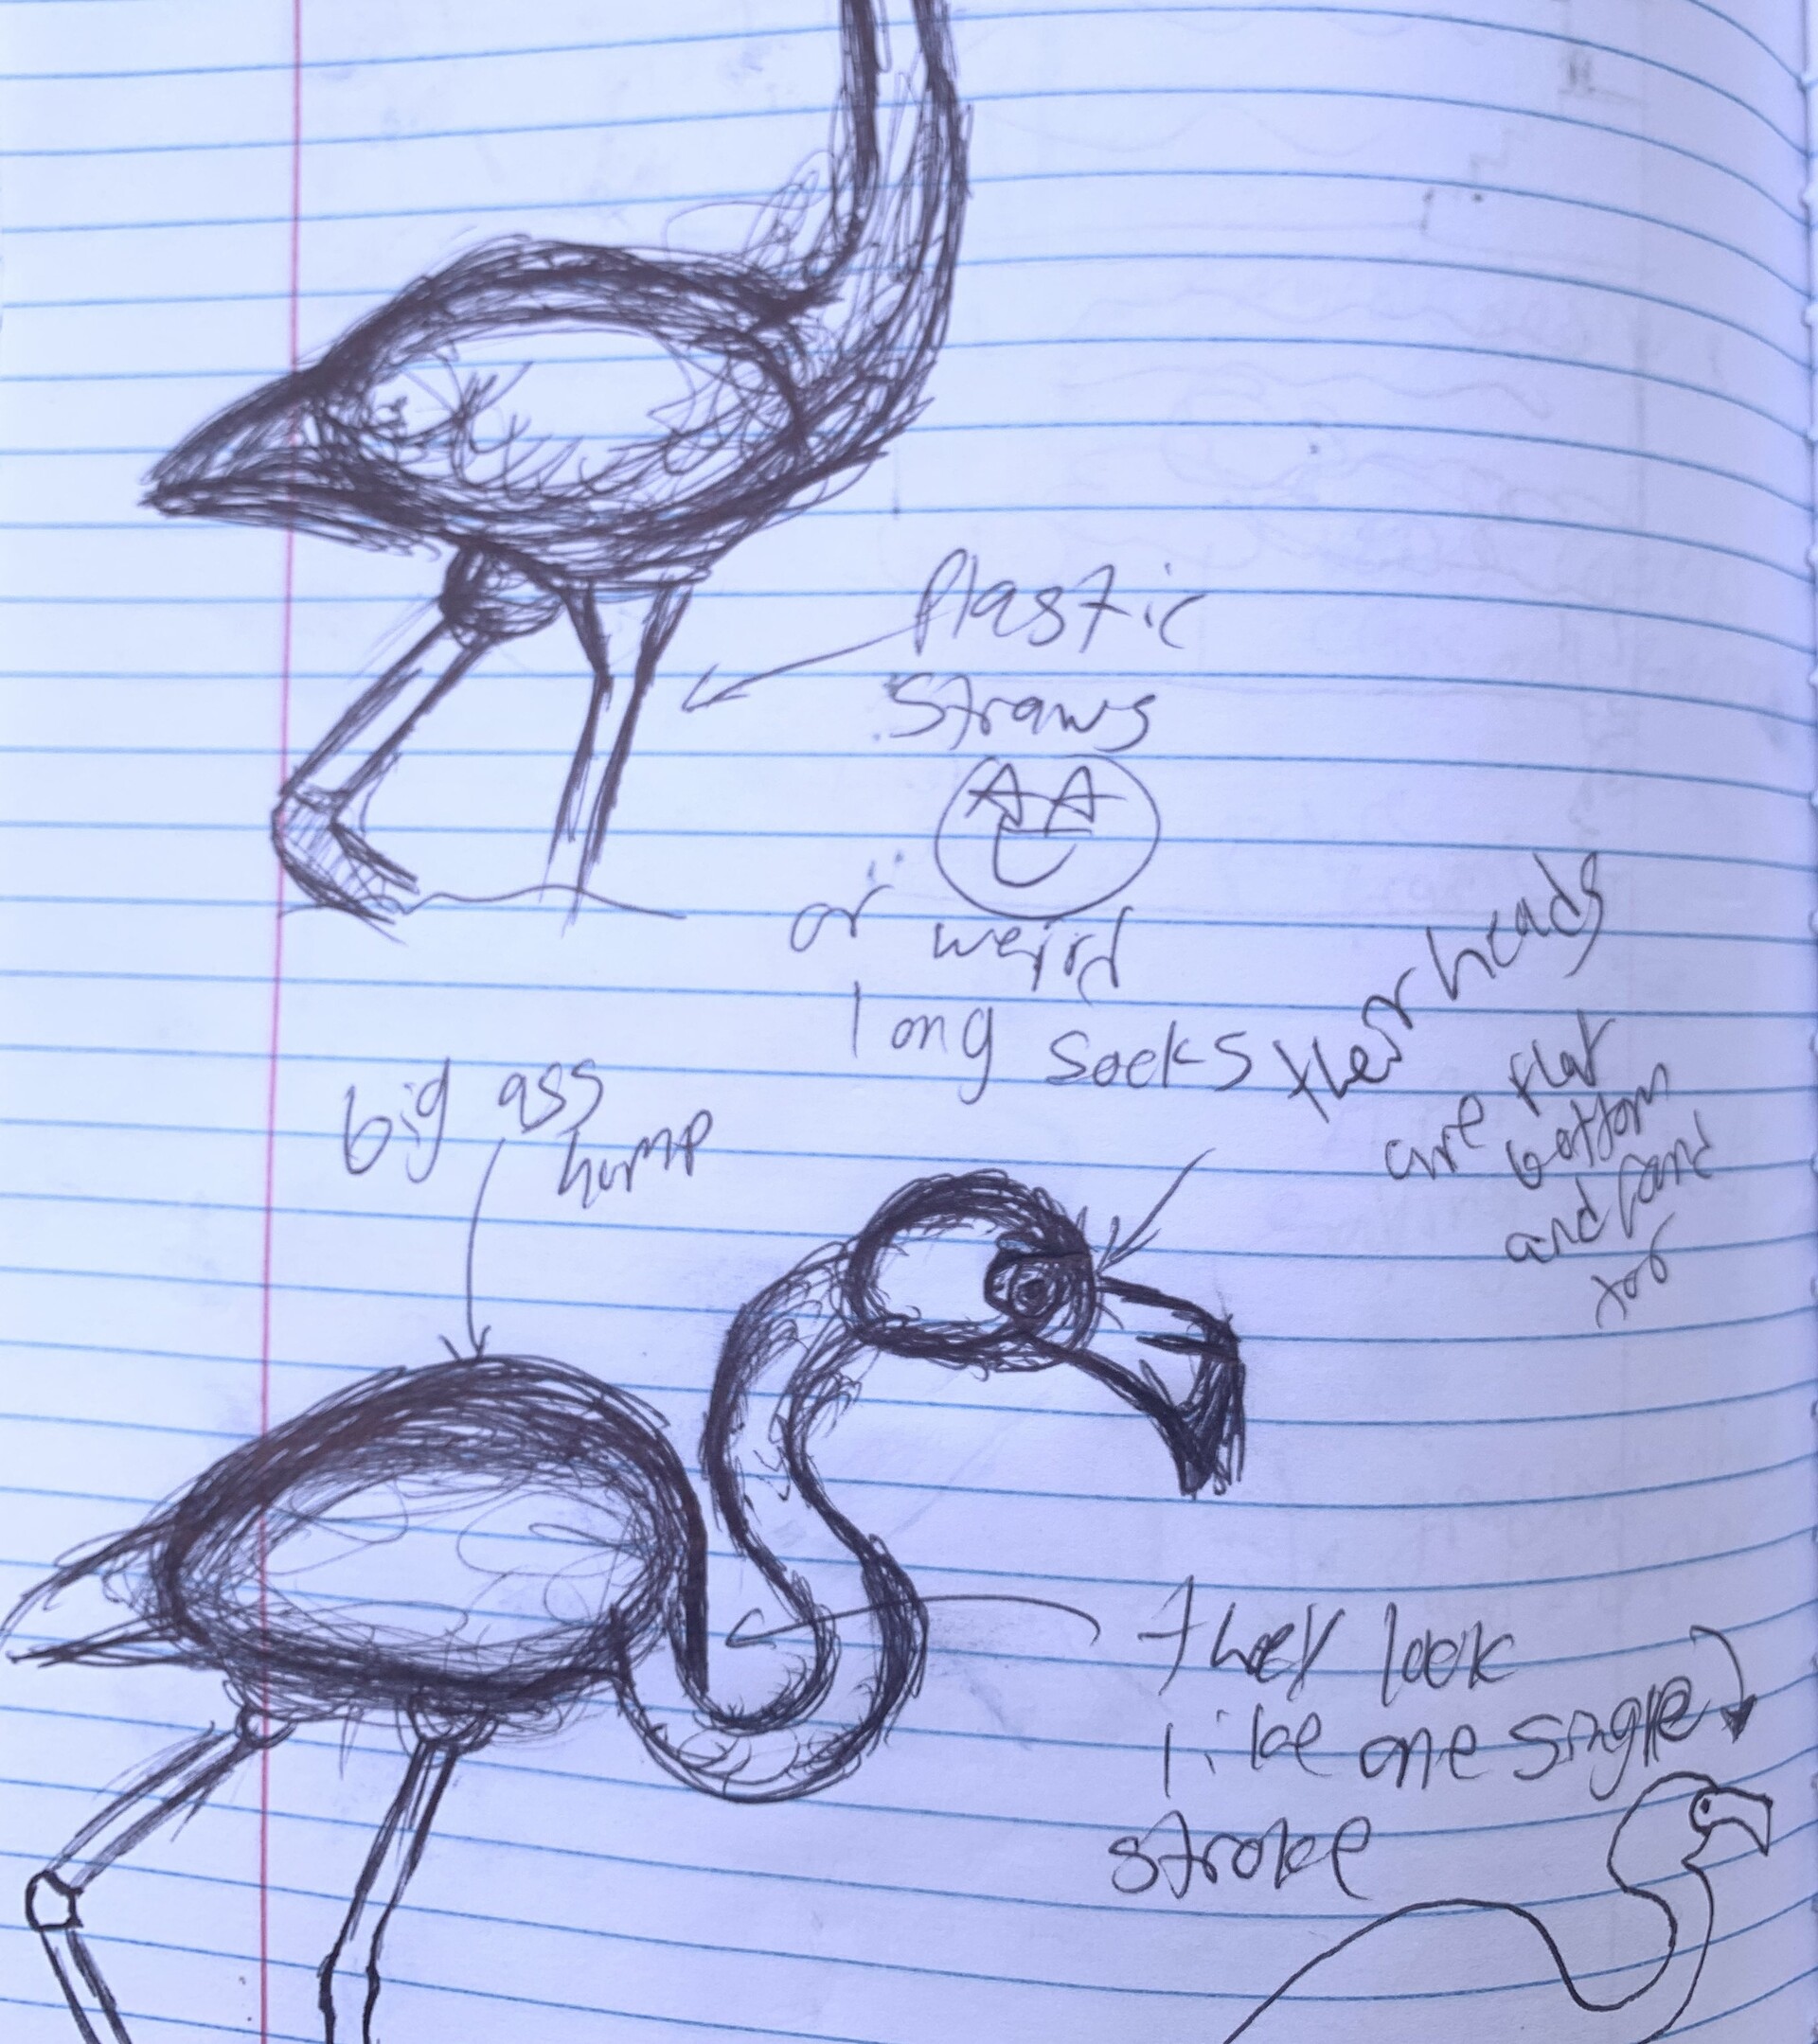 Plastic
straws
or weird
long socks
their heads
are flat
bottom
and
big ass
hump
they look
like one single
stroke